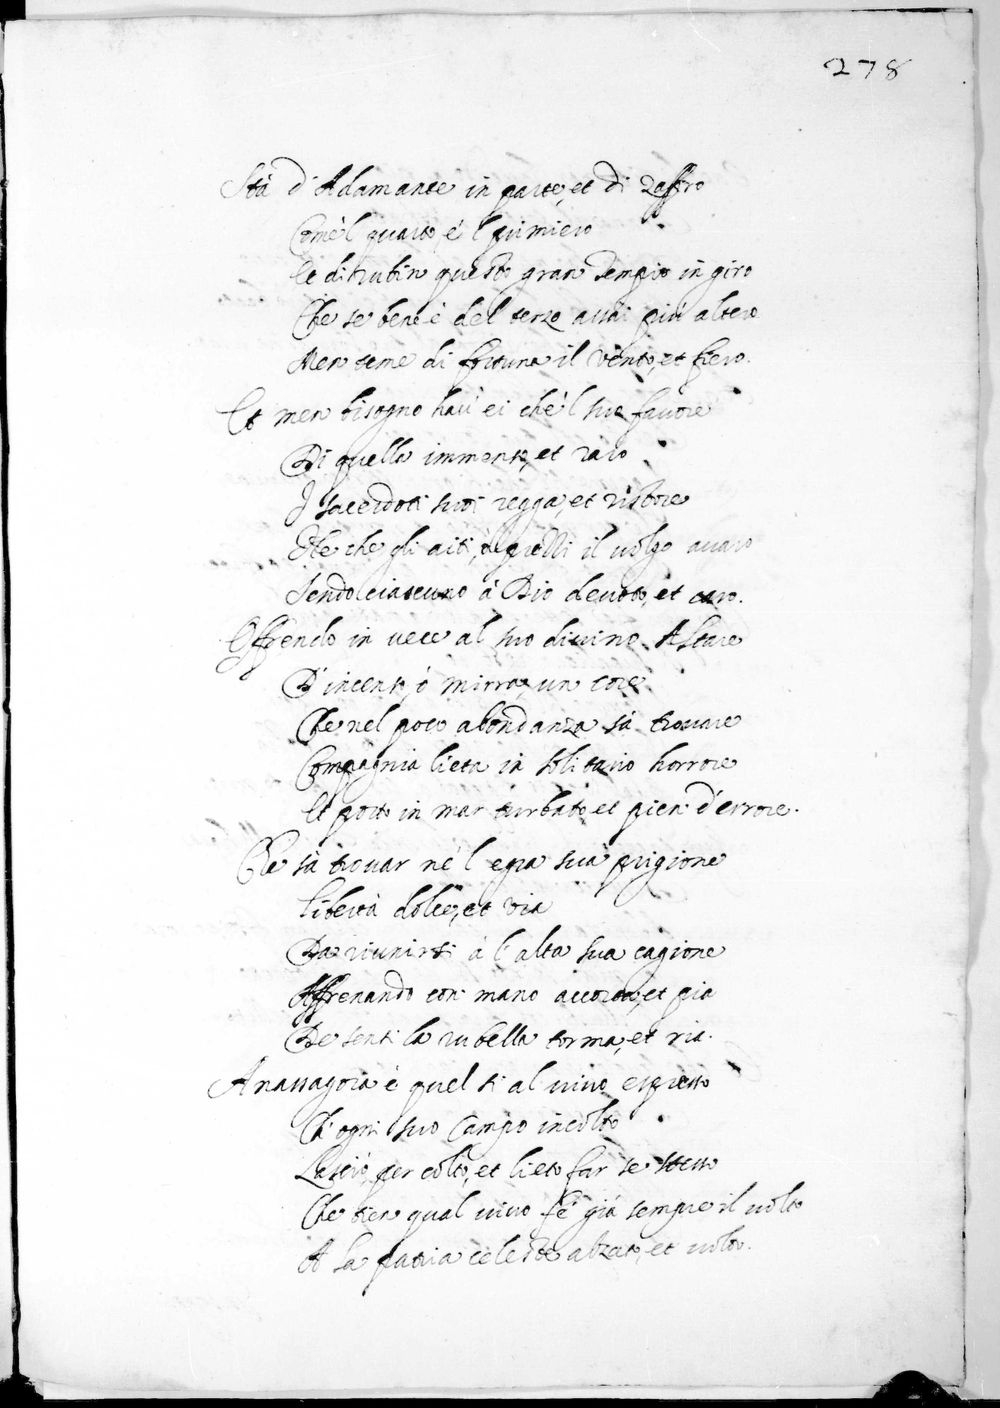 278
Stà d'Adamante in parte, et di zaffro
Com'è'l quarto, e'l primiero
Et di rubin questo gran Tempio in giro
Che se bene è del terzo assai più altero
Men teme di fortuna il vento, et fiero.
Et men bisogno hau' ei che'l suo fauore
Di quella immensa, et raro
I sacerdoti suoi regga, et ristore
che gli aiti, il volgo auaro
Sendo ciascuno à Dio deuoto, et caro.
Offrendo in uece al suo diuino Altare
D'incensi, ò mirra, un core
Che nel poco abondanza sà trouare
Compagnia lieta in solitario horrore
Et porto in mar turbato, et pien d'errore.
Che sà trouar ne'l egra sua prigione
Libertà dolce, et via
Da riunirsi à l'alta sua cagione
Affrenando con mano accorta, et pia
De sensi la rubella torma, et ria.
Anassagora è quel sì al uiuo espresso
Ch'ogni suo Campo incolto
Lasciò, per colto, et lieto far se stesso
Che tien qual uiuo fè già sempre il uolto
A la patria celeste alzato, et uolto.